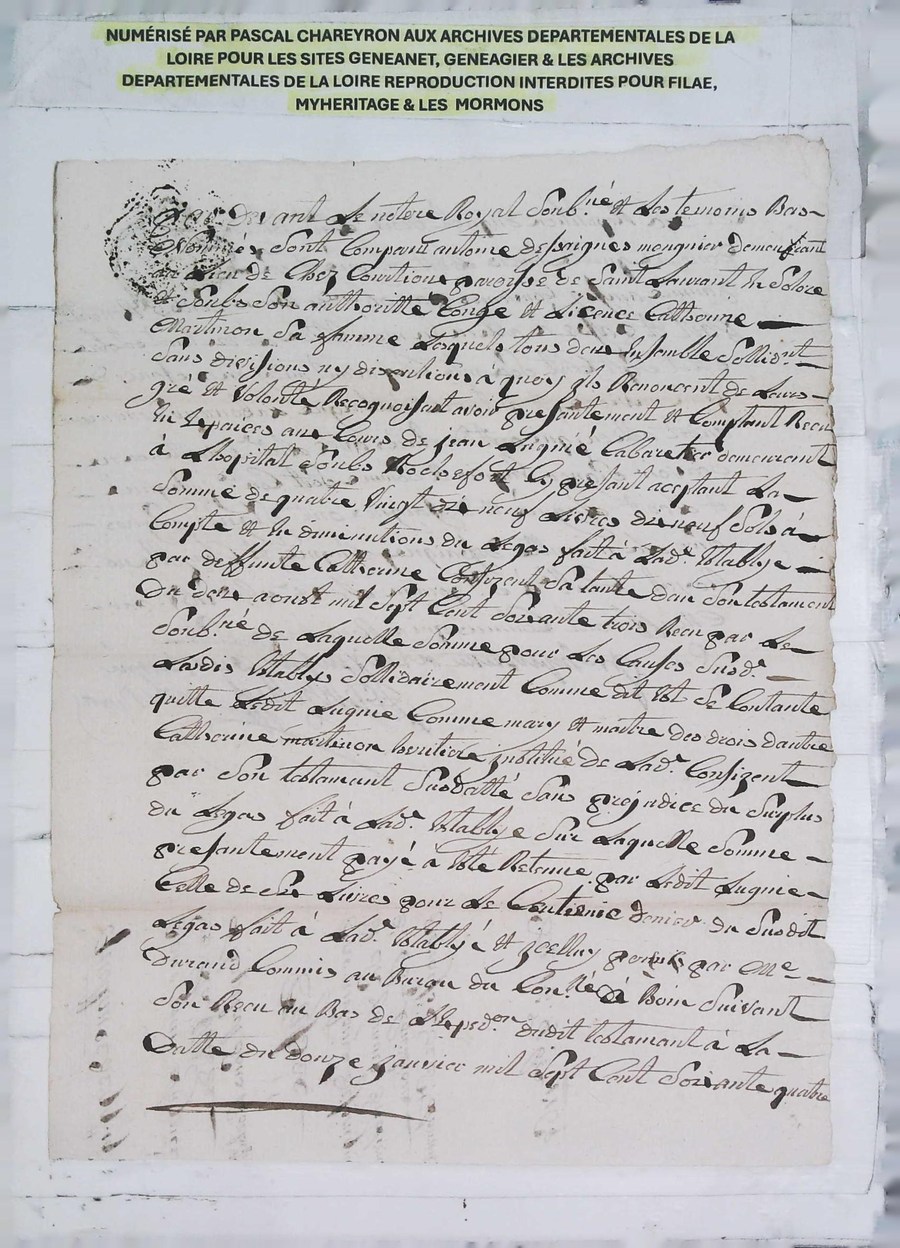 NUMÉRISÉ PAR PASCAL CHAREYRON AUX ARCHIVES DEPARTEMENTALES DE LA
LOIRE POUR LES SITES GENEANET, GENEAGIER & LES ARCHIVES
DEPARTEMENTALES DE LA LOIRE REPRODUCTION INTERDITES POUR FILAE,
MYHERITAGE & LES MORMONS
Par Devant Le notere Royal Soub.né et Les temoins Bas
Nommés Sont Comparu antoine desseignes meugnier demeurant
au Lieu de Chez Courtione paroisse de Saint Laurant En Solore
et Soubs Son authoritté Congé et Licence Catherine
Martinon Sa famme Lesquels tous deux Ensemble Sollid.nt
Sans divisions ny discutions à quoy ils Renoncent de Leurs
gré et Volonté Recognoissent avoir presantement et Comptant Receu
En Espaices aux Cours de jean Lugnié Cabaretier demeurant
à Lhospital Soubs Rochefort Cy presant aceptant La
Somme de quatre Vingt dix neuf Livres dix neuf Sols à
Compte et En diminutions du Legas fait à Lad.e Estabye
par deffunte Catherine Confizent Sa tante dans Son testament
Du deux aoust mil Sept Cent Soixante trois Receu par Le
Soub.né de Laquelle Somme pour Les Causes Susd.e
Lesdis Establys Sollidairement Comme dit Est Se Contante
quitte Ledit Lugnie Comme mary et maitre des drois dautre
Catherine martinon heritiere instituée de Lad.e Confizent
par Son testament Susdatté Sans préjudice du Surplus
du Legas fait à Lad.e Establye Sur Laquelle Somme
presantement payé a Eté Retenue par Ledit Lugnie
Celle de Six Livres pour Le Centieme denier du Susdit
Legas fait à Lad.e Establyé et jcelluy par M.e
Durand Commis au Bureau du Con.lle de Boin Suivant
Son Receu au Bas de LExped.on dudit testament à La
Datte du douze janvier mil Sept Cent Soixante quatre